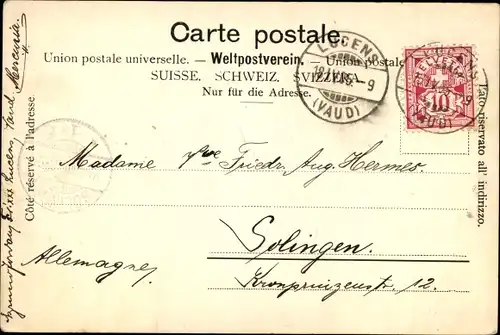 Carte postale.
Union postale universelle. — Weltpostverein. — Union postale
SUISSE. SCHWEIZ. SVIZZERA.
Nur für die Adresse.
Côté réservé à l'adresse.
Lato riservato all' indirizzo.
LUCENS
(VAUD)
10
LUCENS
(VAUD)
Madame Vve Friedr. Aug. Hermes.
Solingen.
Allemagne.
Kronprinzenstr. 12.
Lucens